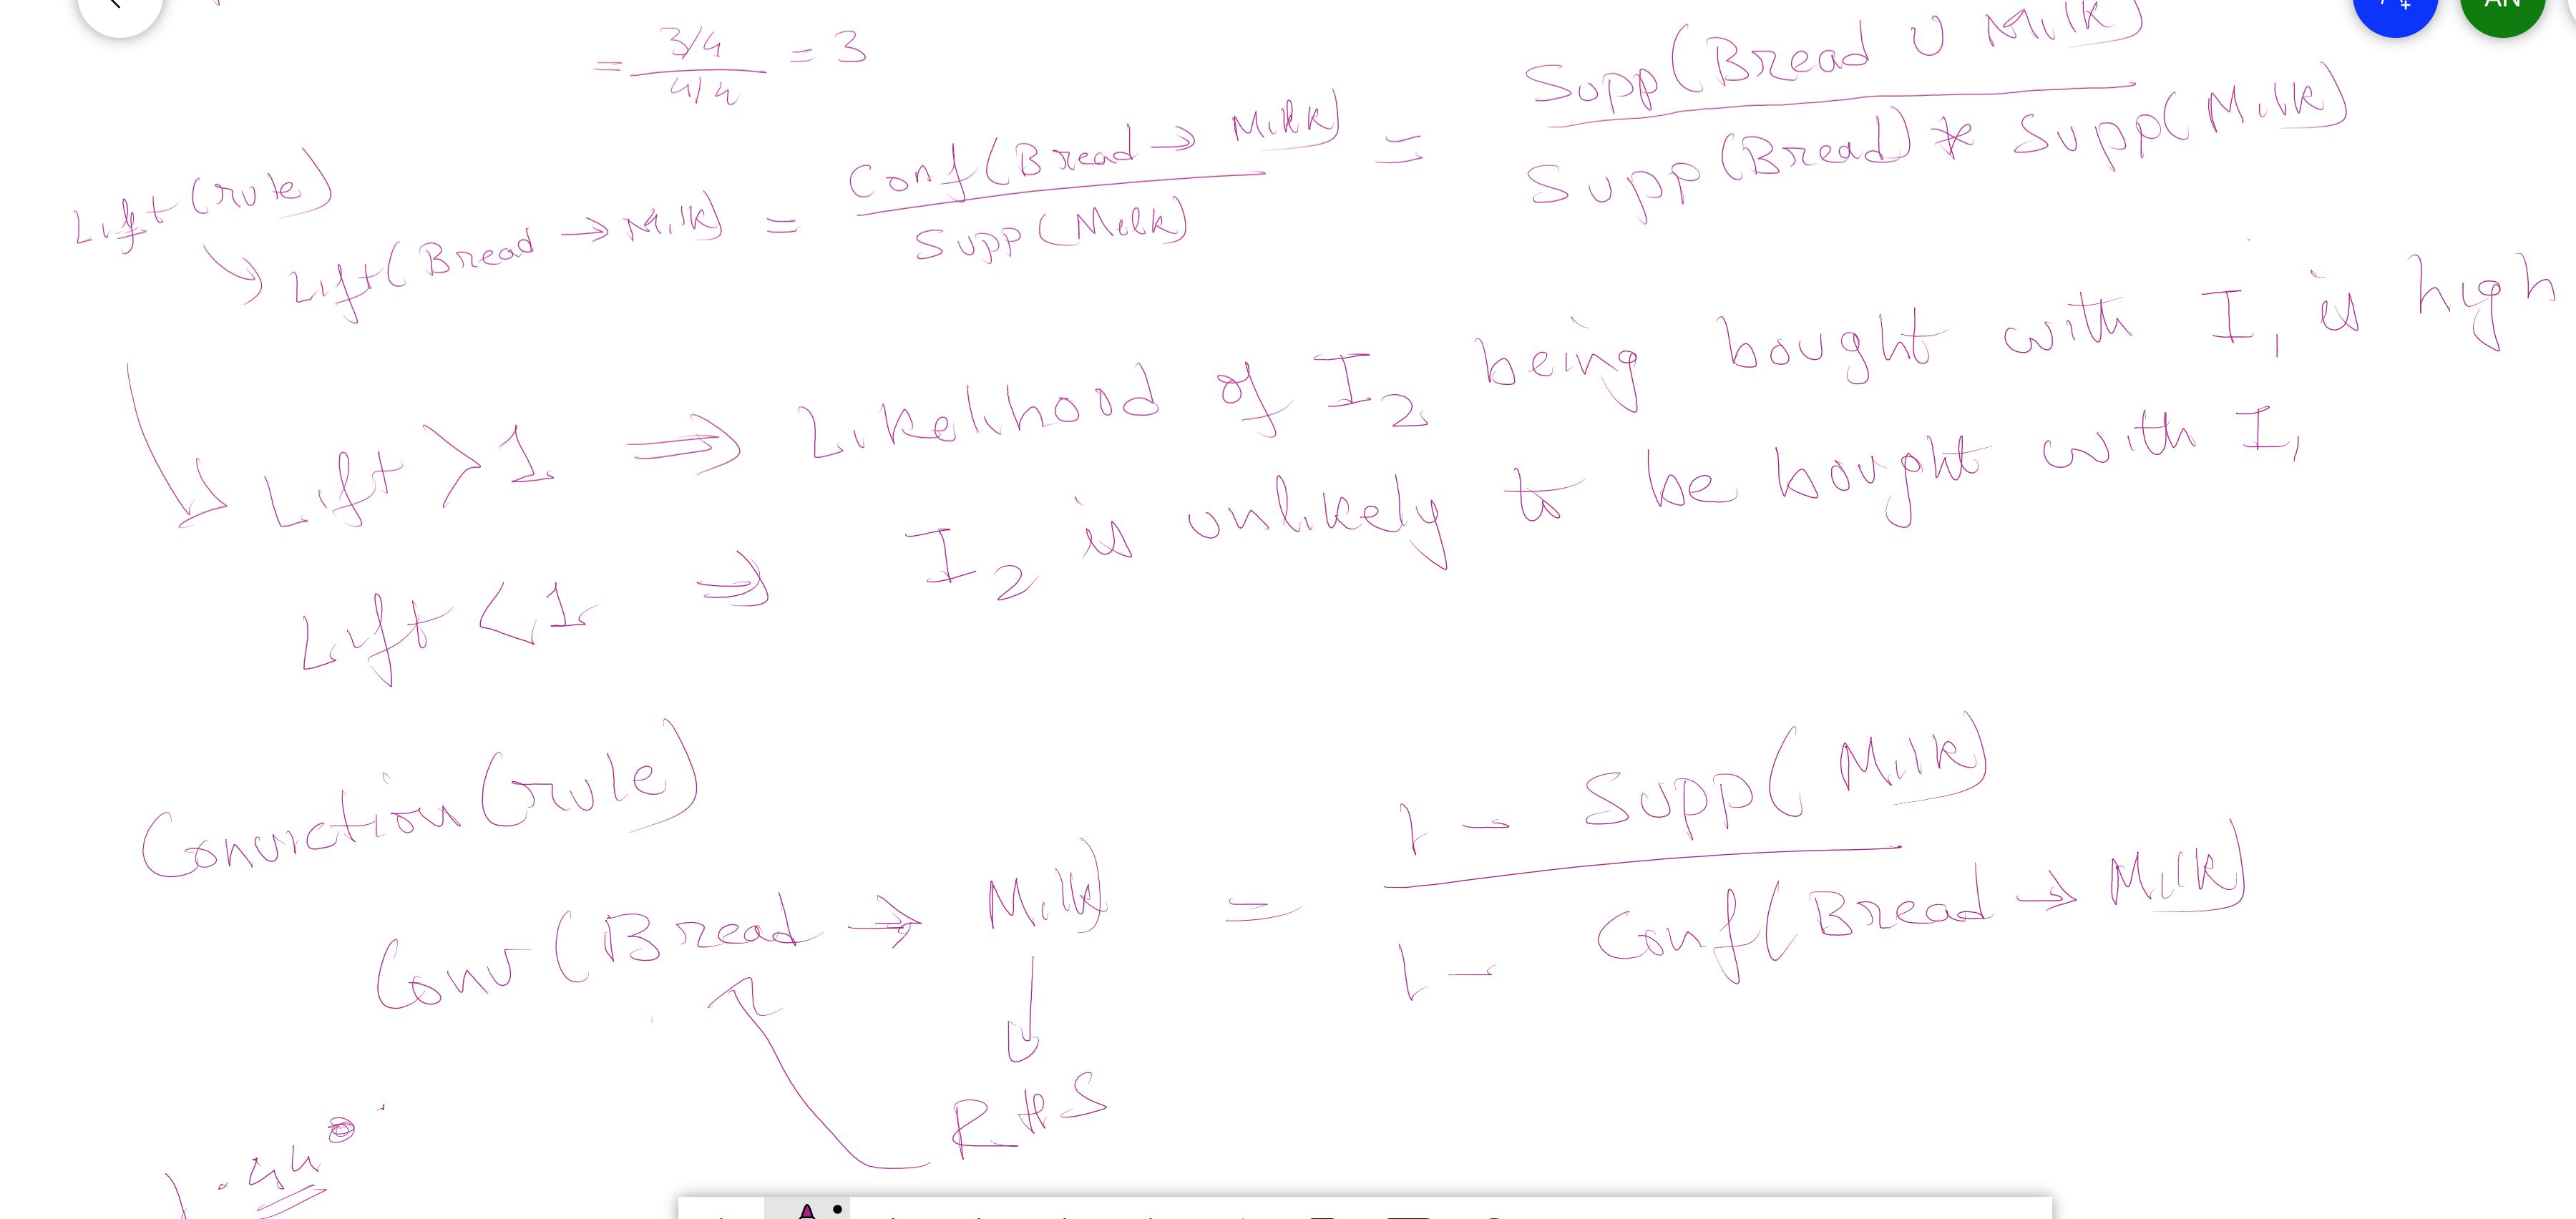 = 3/4 / 4/4 = 3
Lift (rule)
Lift (Bread → Milk) = Conf (Bread → Milk) / Supp (Milk) = Supp (Bread ∪ Milk) / Supp (Bread) * Supp (Milk)
Lift > 1 ⇒ Likelihood of I2 being bought with I1 is high
Lift < 1 ⇒ I2 is unlikely to be bought with I1
Conviction (rule)
Conv (Bread → Milk) = 1 - Supp (Milk) / 1 - Conf (Bread → Milk)
RHS
1.44
AN